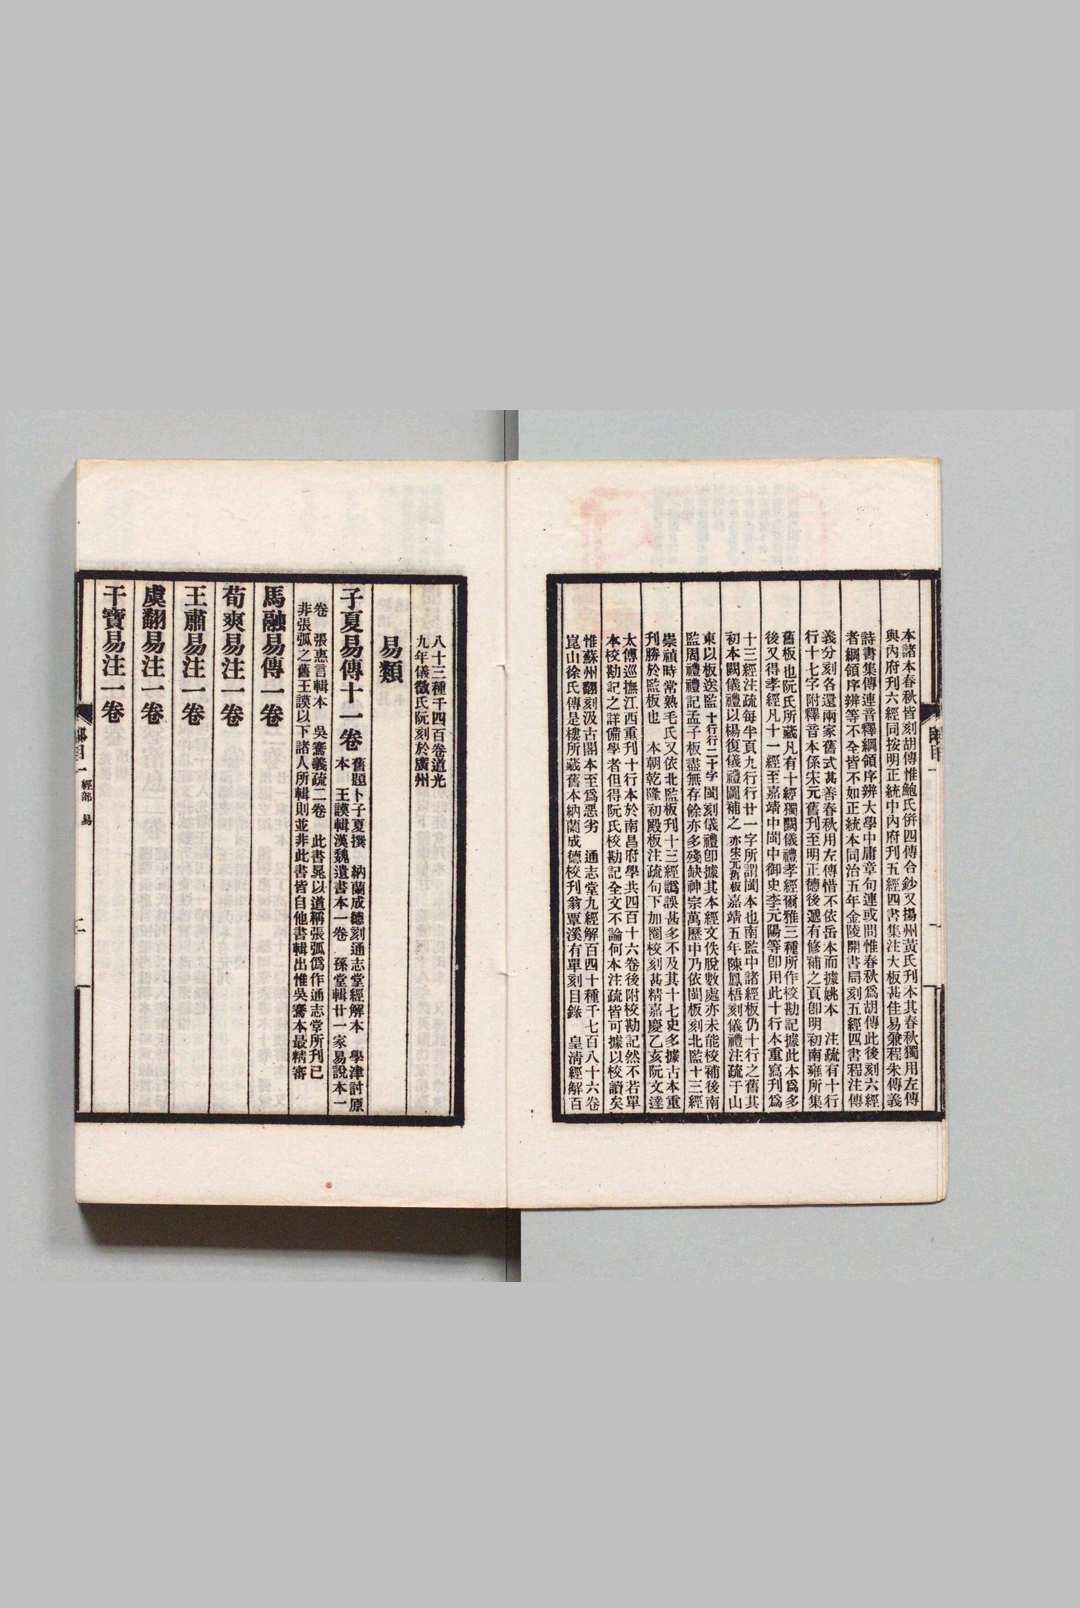 本諸本春秋皆刻胡傳惟鮑氏併四傳合鈔又揚州黃氏刋本其春秋獨用左傳
與內府刋六經同按明正統中內府刋五經四書集注大板甚佳易兼程朱傳義
詩書集傳連音釋綱領序辨大學中庸章句連或問惟春秋爲胡傳此後刻六經
者綱領序辨等不全皆不如正統本同治五年金陵開書局刻五經四書程注傳
義分刻各還兩家舊式甚善春秋用左傳惜不依岳本而據姚本　注疏有十行
行十七字附釋音本係宋元舊刋至明正德後遞有修補之頁卽明初南雍所集
舊板也阮氏所藏凡有十經獨闕儀禮孝經爾雅三種所作校勘記據此本爲多
後又得孝經凡十一經至嘉靖中閩中御史李元陽等卽用此十行本重寫刋爲
十三經注疏每半頁九行行廿一字所謂閩本也南監中諸經板仍十行之舊其
初本闕儀禮以楊復儀禮圖補之亦宋元舊板嘉靖五年陳鳳梧刻儀禮注疏于山
東以板送監十行行二十字閩刻儀禮卽據其本經文佚脫數處亦未能校補後南
監周禮禮記孟子板盡無存餘亦多殘缺神宗萬歷中乃依閩板刻北監十三經
崇禎時常熟毛氏又依北監板刋十三經譌誤甚多不及其十七史多據古本重
刋勝於監板也　本朝乾隆初殿板注疏句下加圈校刻甚精嘉慶乙亥阮文達
太傅巡撫江西重刋十行本於南昌府學共四百十六卷後附校勘記然不若單
本校勘記之詳備學者但得阮氏校勘記全文不論何本注疏皆可據以校讀矣
惟蘇州翻刻汲古閣本至爲惡劣　通志堂九經解百四十種千七百八十六卷
崑山徐氏傳是樓所藏舊本納蘭成德校刋翁覃溪有單刻目錄　皇淸經解百
八十三種千四百卷道光
九年儀徵氏阮刻於廣州
易類
子夏易傳十一卷
舊題卜子夏撰　納蘭成德刻通志堂經解本　學津討原
本　王謨輯漢魏遺書本一卷　孫堂輯廿一家易說本一
卷　張惠言輯本　吳騫義疏二卷　此書晁以道稱張弧僞作通志堂所刋已
非張弧之舊王謨以下諸人所輯則並非此書皆自他書輯出惟吳騫本最精審
馬融易傳一卷
荀爽易注一卷
王肅易注一卷
虞翻易注一卷
干寶易注一卷
經部　易